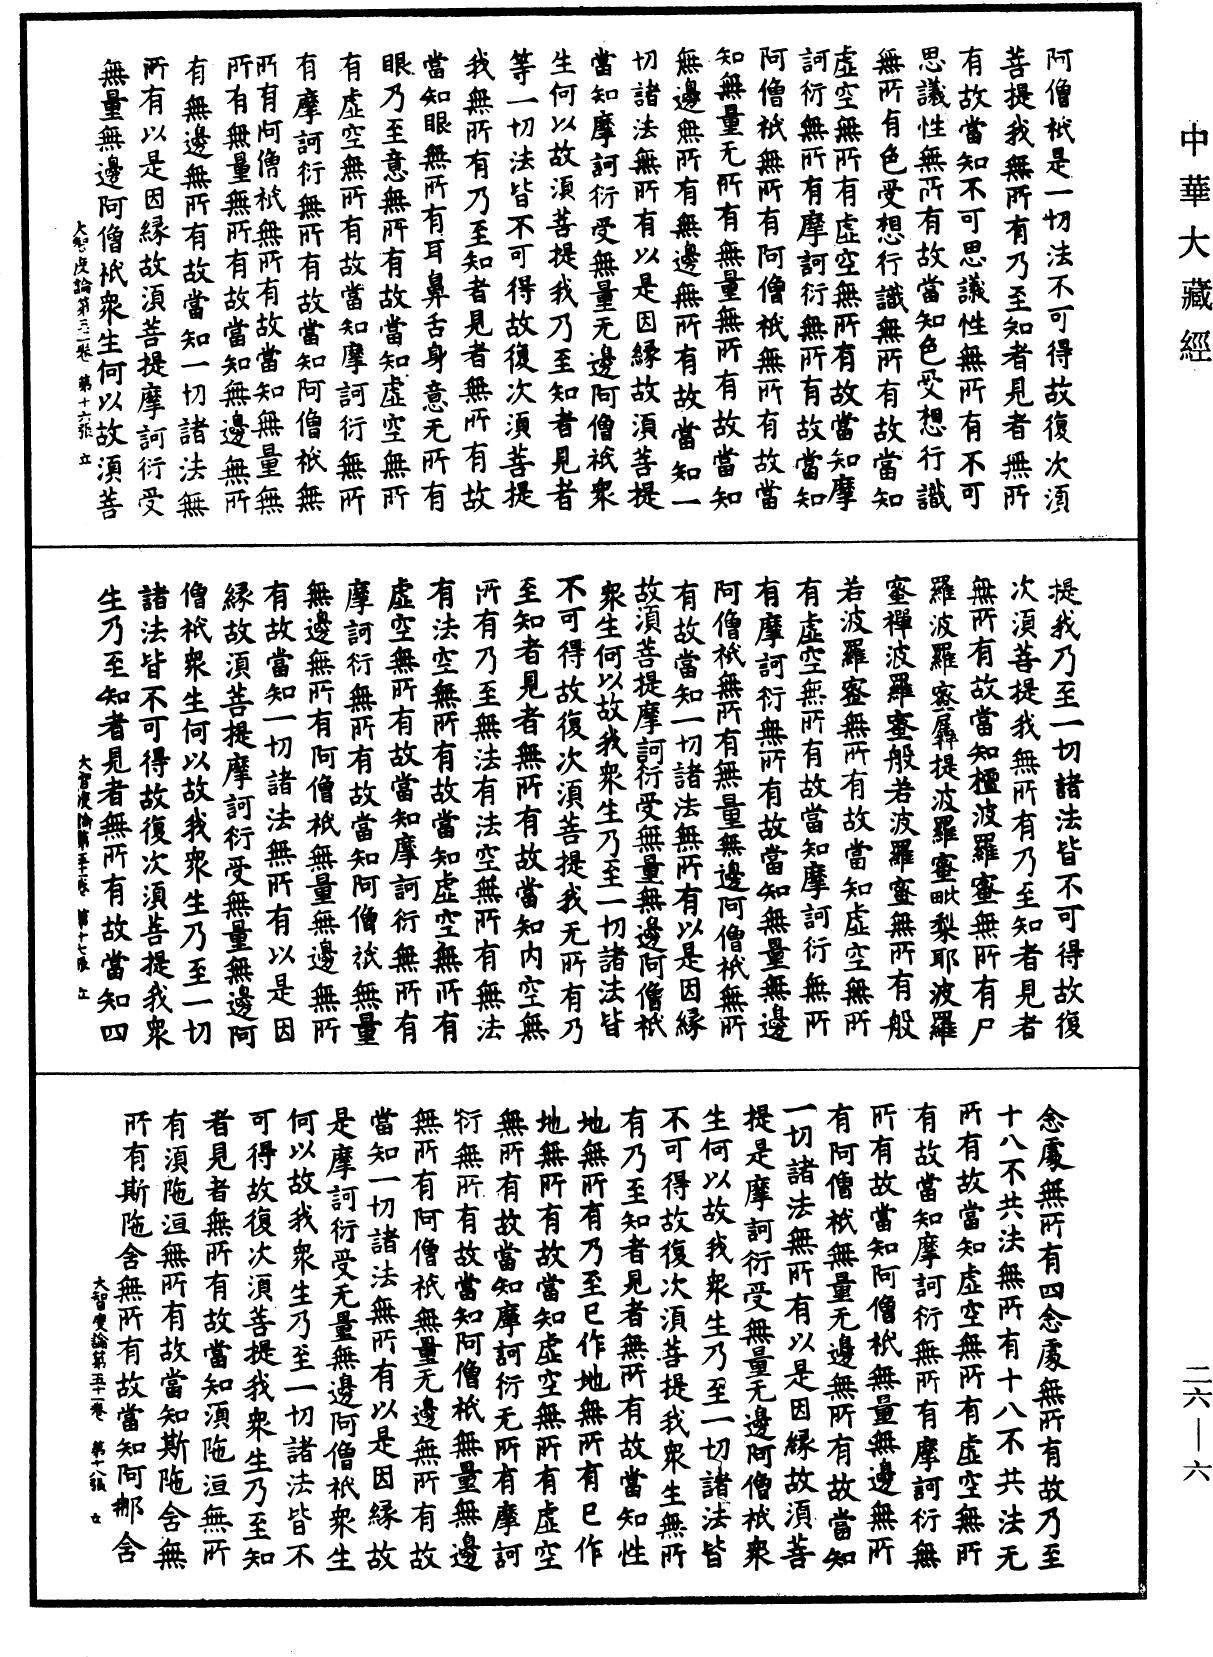 中華大藏經
阿僧祇是一切法不可得故復次須
菩提我無所有乃至知者見者無所
有故當知不可思議性無所有不可
思議性無所有故當知色受想行識
無所有色受想行識無所有故當知
虛空無所有虛空無所有故當知摩
訶衍無所有摩訶衍無所有故當知
阿僧祇無所有阿僧祇無所有故當
知無量无所有無量無所有故當知
無邊無所有無邊無所有故當知一
切諸法無所有以是因緣故須菩提
當知摩訶衍受無量无邊阿僧祇衆
生何以故須菩提我乃至知者見者
等一切法皆不可得故復次須菩提
我無所有乃至知者見者無所有故
當知眼無所有耳鼻舌身意无所有
眼乃至意無所有故當知虛空無所
有虛空無所有故當知摩訶衍無所
有摩訶衍無所有故當知阿僧祇無
所有阿僧祇無所有故當知無量無
所有無量無所有故當知無邊無所
有無邊無所有故當知一切諸法無
所有以是因緣故須菩提摩訶衍受
無量無邊阿僧祇衆生何以故須菩
大智度論第五十一卷 第十六張 立
提我乃至一切諸法皆不可得故復
次須菩提我無所有乃至知者見者
無所有故當知檀波羅蜜無所有尸
羅波羅蜜羼提波羅蜜毗梨耶波羅
蜜禪波羅蜜般若波羅蜜無所有般
若波羅蜜無所有故當知虛空無所
有虛空無所有故當知摩訶衍無所
有摩訶衍無所有故當知無量無邊
阿僧祇無所有無量無邊阿僧祇無所
有故當知一切諸法無所有以是因緣
故須菩提摩訶衍受無量無邊阿僧祇
衆生何以故我衆生乃至一切諸法皆
不可得故復次須菩提我无所有乃
至知者見者無所有故當知內空無
所有乃至無法有法空無所有無法
有法空無所有故當知虛空無所有
虛空無所有故當知摩訶衍無所有
摩訶衍無所有故當知阿僧祇無量
無邊無所有阿僧祇無量無邊無所
有故當知一切諸法無所有以是因
緣故須菩提摩訶衍受無量無邊阿
僧祇衆生何以故我衆生乃至一切
諸法皆不可得故復次須菩提我衆
生乃至知者見者無所有故當知四
大智度論第五十一卷 第十七張 立
念處無所有四念處無所有故乃至
十八不共法無所有十八不共法无
所有故當知虛空無所有虛空無所
有故當知摩訶衍無所有摩訶衍無
所有故當知阿僧祇無量無邊無所
有阿僧祇無量无邊無所有故當知
一切諸法無所有以是因緣故須菩
提是摩訶衍受無量无邊阿僧祇衆
生何以故我衆生乃至一切諸法皆
不可得故復次須菩提我衆生無所
有乃至知者見者無所有故當知性
地無所有乃至已作地無所有已作
地無所有故當知虛空無所有虛空
無所有故當知摩訶衍无所有摩訶
衍無所有故當知阿僧祇無量無邊
無所有阿僧祇無量无邊無所有故
當知一切諸法無所有以是因緣故
是摩訶衍受无量無邊阿僧祇衆生
何以故我衆生乃至一切諸法皆不
可得故復次須菩提我衆生乃至知
者見者無所有故當知須陁洹無所
有須陁洹無所有故當知斯陁含無
所有斯陁含無所有故當知阿那含
大智度論第五十一卷 第十八張 立
二六—六